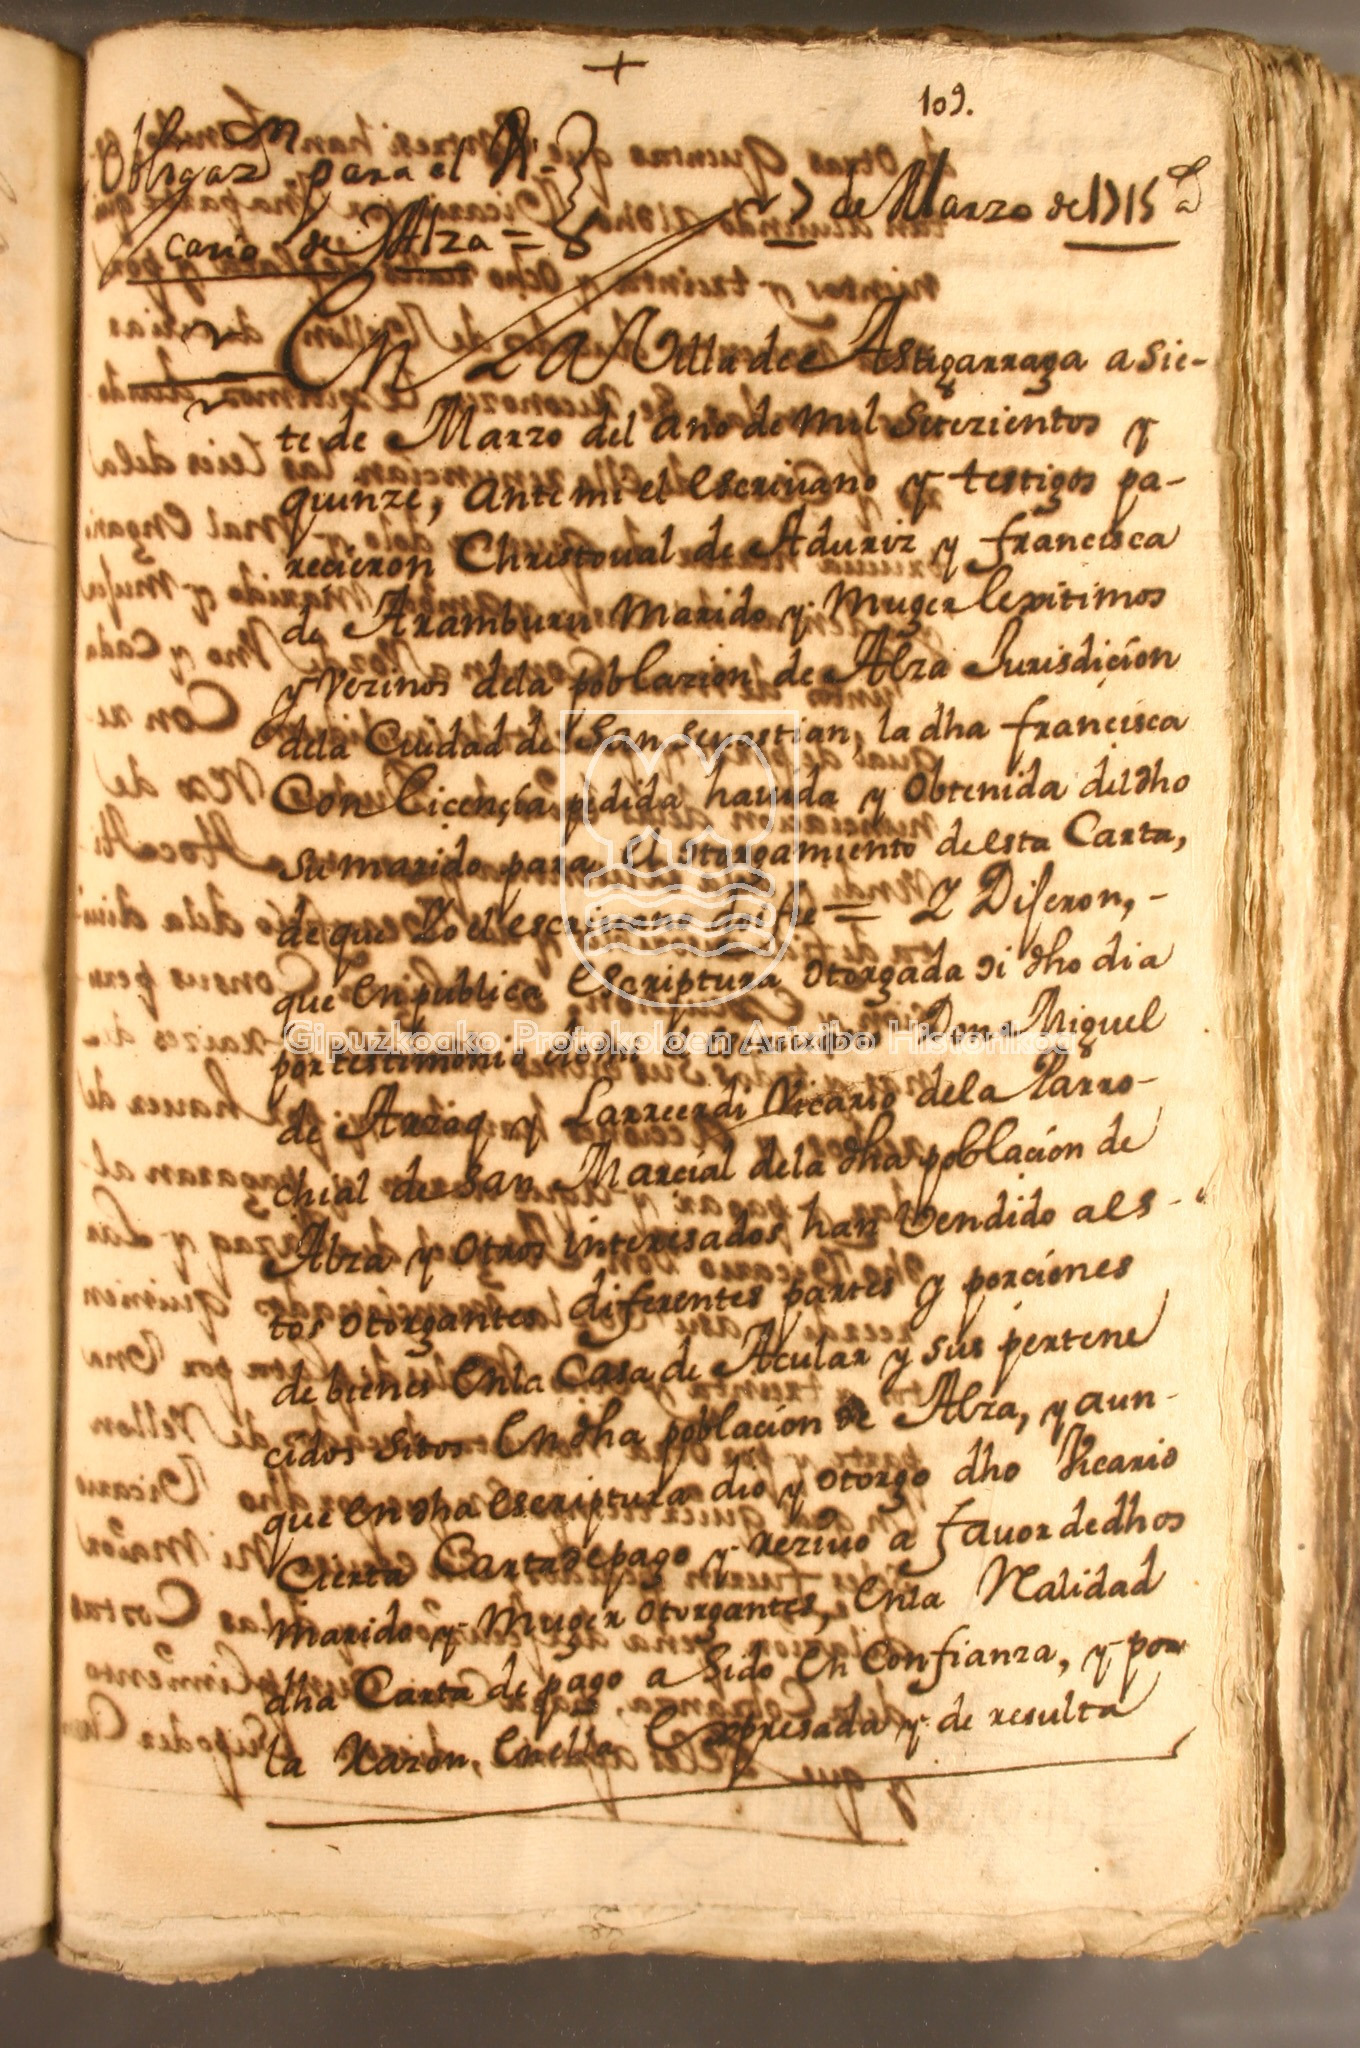 +
109.
Obligazon para el Vi-
cario de Alza =
7 de Marzo de 1715
En La Villa de Astigarraga a sie-
te de Marzo del año de mil Setezientos y
quinze, ante mi el escriuano y testigos pa-
recieron Christoual de Aduriz y francisca
de Aramburu Marido y Muger lexitimos
y Vezinos dela poblazion de Alza Jurisdicion
dela Ciudad de San Seuastian, la dha francisca
Con licençia pedida hauida y Obtenida del dho
su marido para el otorgamiento de esta Carta,
de que Yo el escriuano doi fee = Y Dijeron, -
que en publica escriptura otorgada oi dho dia
por testimonio de mi el escriuano Don Miguel
de Arzaq y Larreerdi Vicario dela Parro-
chial de San Marcial dela dha poblacion de
Alza y otros interesados han Vendido a es-
tos otorgantes diferentes partes y porciones
de bienes en la Casa de Acular y sus pertene
cidos sitos en dha poblacion de Alza, y aun-
que en dha escriptura dio y otorgo dho Vicario
cierta Carta de pago y reziuo a fauor de dhos
marido y muger otorgantes, en la Realidad
dha Carta de pago a sido en Confianza, y por
la Razon, en ella expresada y de resulta
Gipuzkoako Protokoloen Artxibo Historikoa